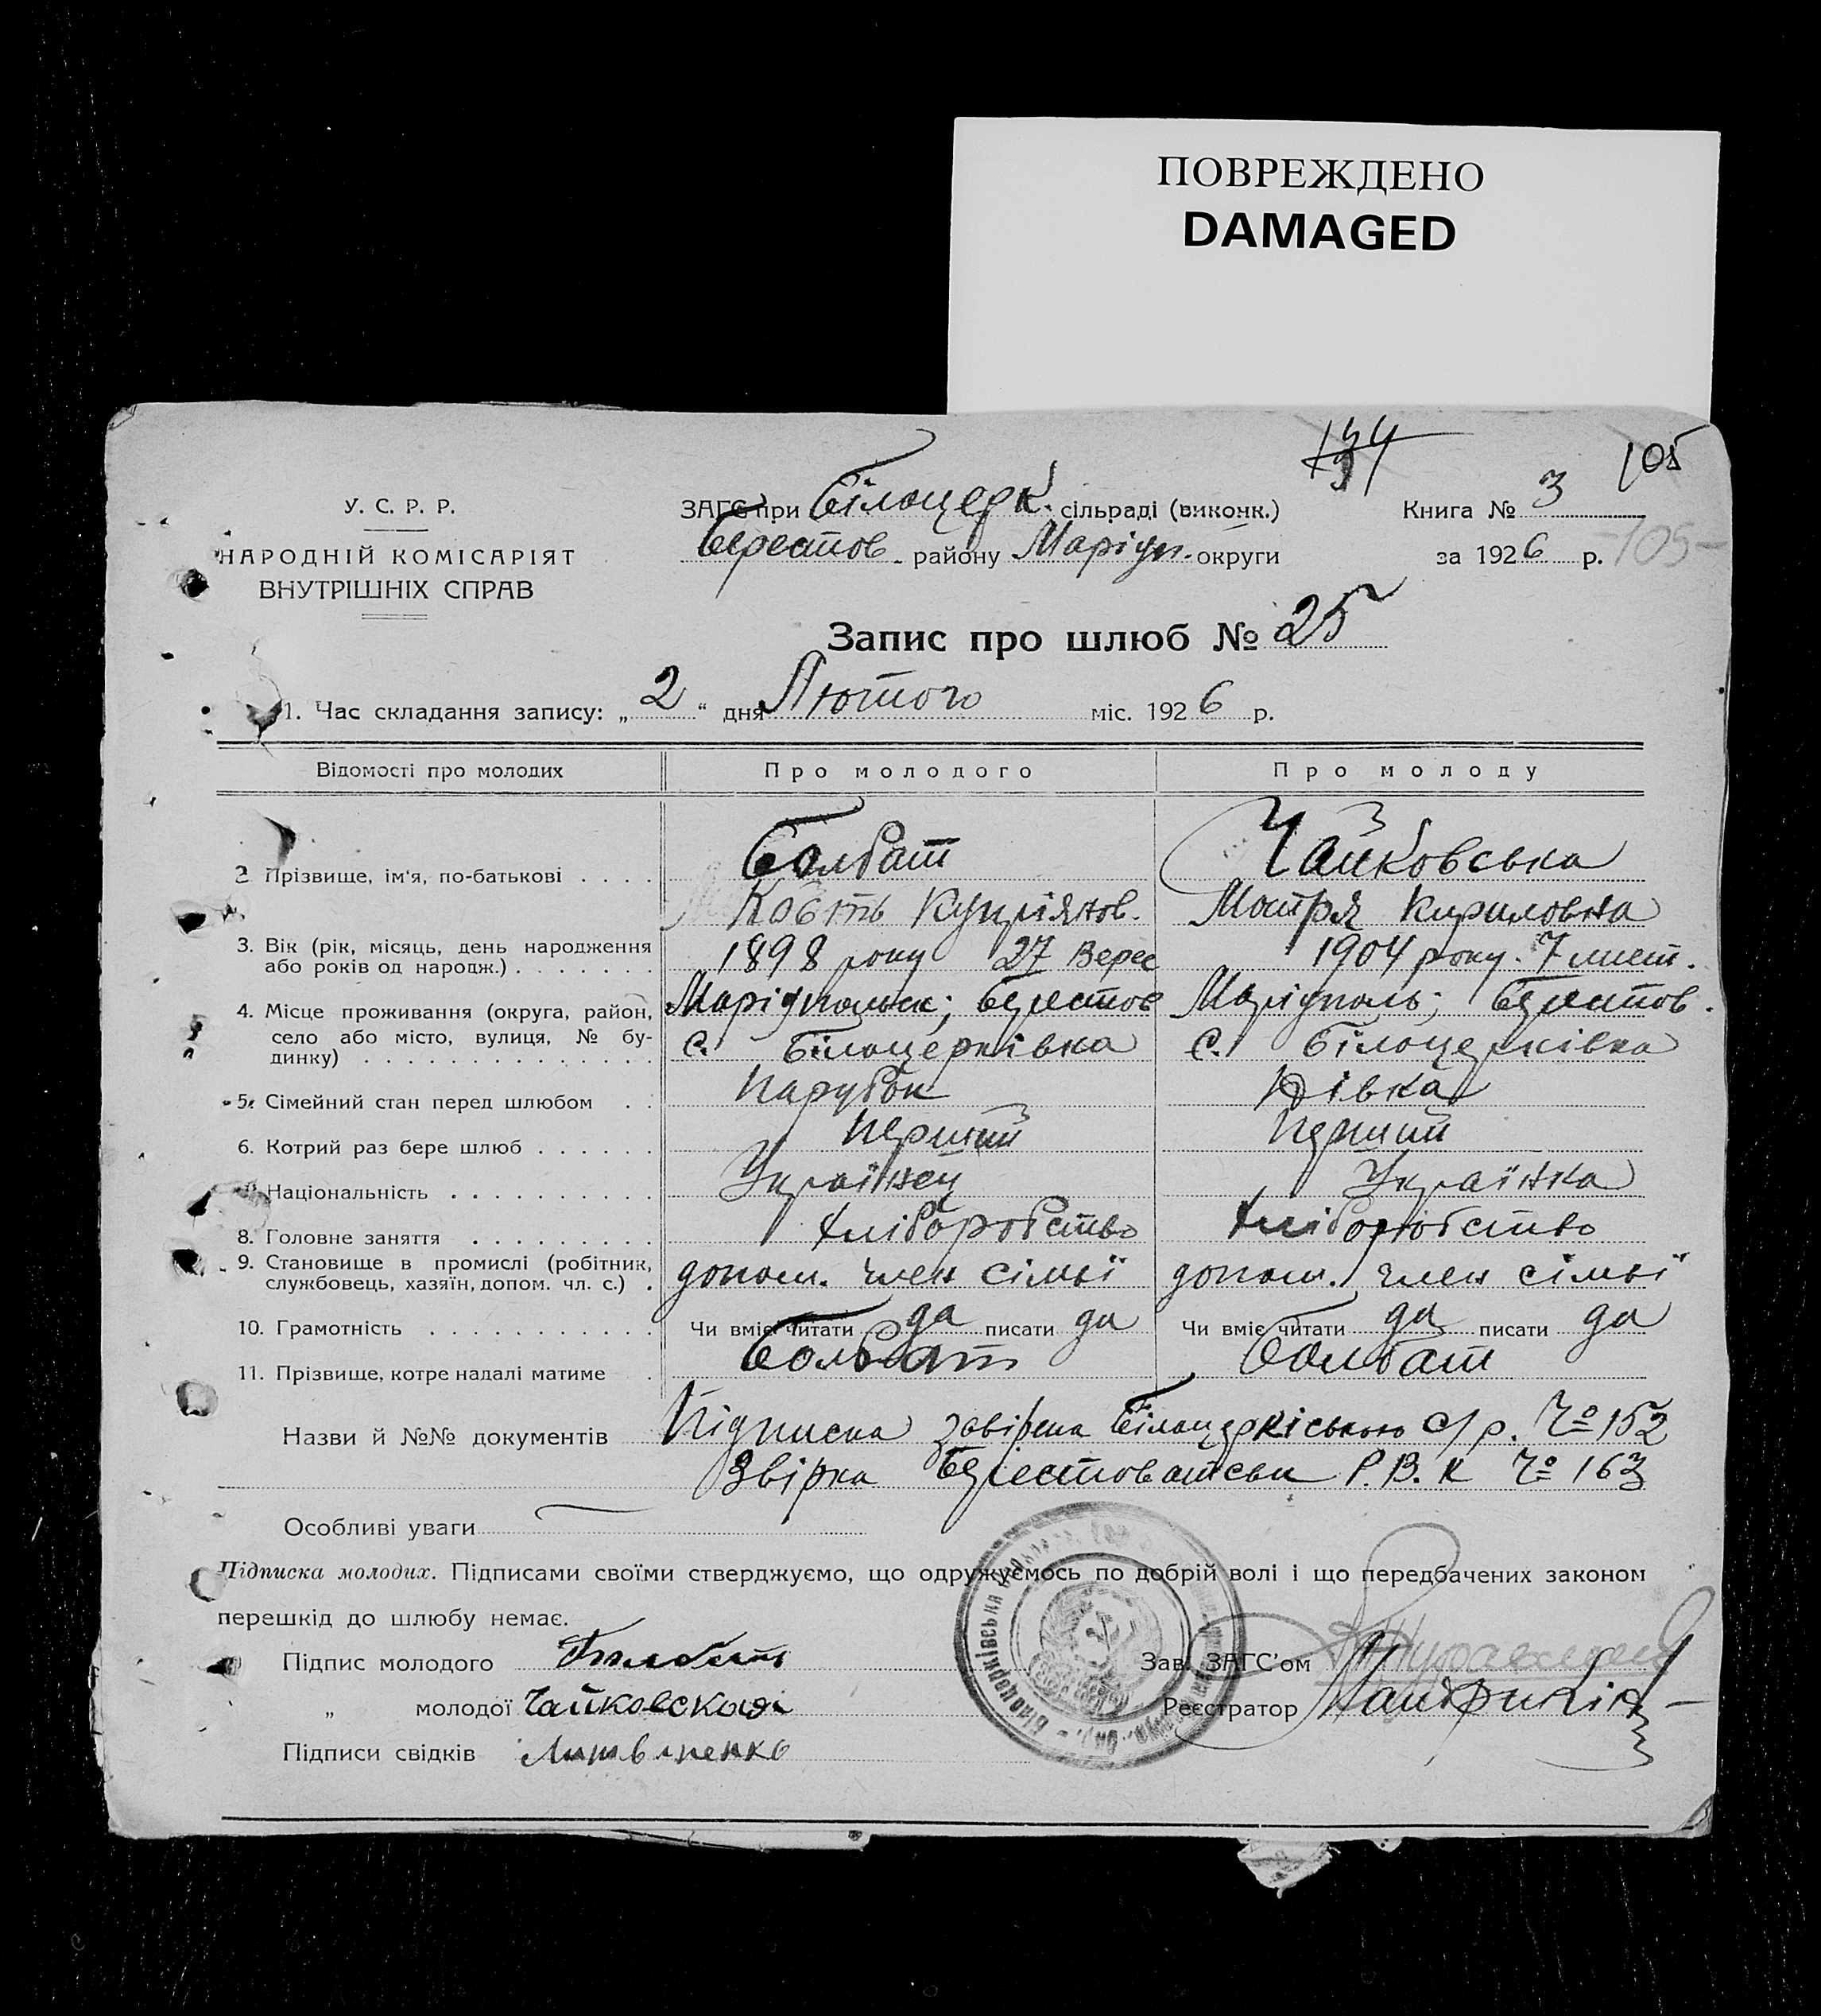 ПОВРЕЖДЕНО
DAMAGED
134
105
У. С. Р. Р.
НАРОДНІЙ КОМІСАРІЯТ
ВНУТРІШНІХ СПРАВ
ЗАГС при Білоцерк. сільраді (виконк.)
Берестов. району Маріуп. округи
Книга № 3
за 1926 р.
-105-
Запис про шлюб № 25
1. Час складання запису: „2“ дня Лютого міс. 1926 р.
Відомості про молодих Про молодого Про молоду
Болбат Чайковська
2. Прізвище, ім'я, по-батькові . . . .
Кость Купріянов. Мотря Кириловна
3. Вік (рік, місяць, день народження або років од народж.) . . . . . . . 1898 року 27 Верес 1904 року. 7 лист.
4. Місце проживання (округа, район, село або місто, вулиця, № будинку) . . . . . . . . . . . . . .
Маріупольск; Берестов Маріуполь; Берестов.
с. Білоцерківка с. Білоцерківка
5. Сімейний стан перед шлюбом . . Парубок Дівка
6. Котрий раз бере шлюб . . . . . . Перший Перший
Національність . . . . . . . . . . Українец Українка
8. Головне заняття . . . . . . . . . Хліборобство Хліборобство
9. Становище в промислі (робітник, службовець, хазяїн, допом. чл. с.) . допом. член сімьї допом. член сімьї
10. Грамотність . . . . . . . . . . . Чи вміє читати да писати да Чи вміє читати да писати да
11. Прізвище, котре надалі матиме . Болбат Болбат
Назви й №№ документів Підписка завірена Білоцеркіською с/р. № 152
Звірка Берестоватськ Р.В.К № 163
Особливі уваги
Підписка молодих. Підписами своїми стверджуємо, що одружуємось по добрій волі і що передбачених законом
перешкід до шлюбу немає.
Підпис молодого Болбатъ
Зав. ЗАГС'ом
„ молодої Чайковская
Реєстратор
Підписи свідків Литвиненко
Білоцерківська